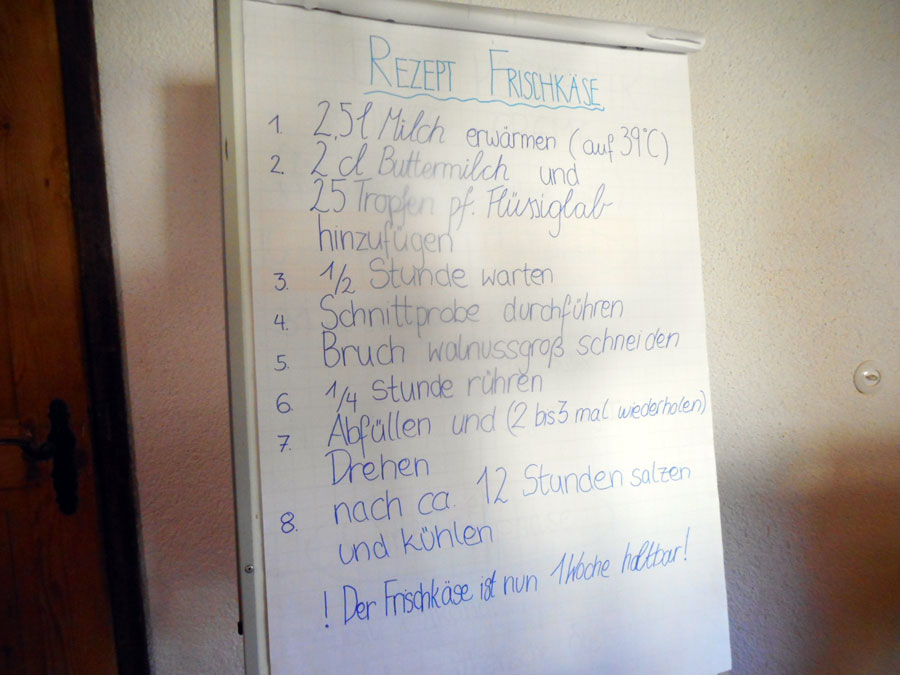 REZEPT FRISCHKÄSE
1. 2,5l Milch erwärmen (auf 39°C)
2. 2 cl Buttermilch und
25 Tropfen pf. Flüssiglab
hinzufügen
3. 1/2 Stunde warten
4. Schnittprobe durchführen
5. Bruch walnussgroß schneiden
6. 1/4 Stunde rühren
7. Abfüllen und (2 bis 3 mal wiederholen)
Drehen
8. nach ca. 12 Stunden salzen
und kühlen
! Der Frischkäse ist nun 1 Woche haltbar!